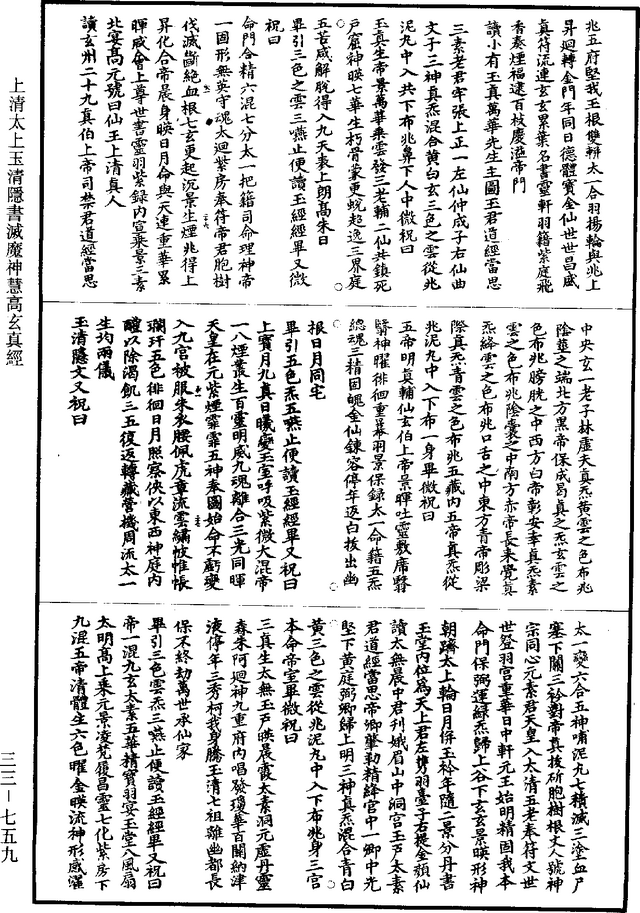 兆五府堅我玉根雙軿太一合羽揚輪與兆上
昇迴轉金門年同日德體寶金仙世世昌盛
真符流連玄玄累葉名書靈軒羽籍紫庭飛
香奏煙福逮百枝慶溢帝門
讀小有玉真萬華先生主圖玉君道經當思
三素老君牢張上正一左仙仲成子右仙曲
文子三神真炁混合黃白玄三色之雲從兆
泥丸中入共下布兆鼻下人中微祝曰
玉真生帝景萬華乘雲發三老輔二仙共鎮死
戶窟神暎七華生朽骨蒙更蛻超逸三界庭
五苦咸解脫得入九天表上朗高朱日
畢引三色之雲三嚥止便讀玉經經畢又微
祝曰
命門合精六混七分太一把籍司命理神帝
一固形無英守魂太迴紫房奉符帝君胞樹
伐滅斷絕血根七玄更起沉景生煙兆得上
昇化合帝晨身暎日月命與天連重華累
暉咸會上尊世書靈羽紫錄內宣乘景三素
北宴高元號曰仙王上清真人
讀玄州二十九真伯上帝司禁君道經當思
中央玄一老子林虛夫真炁黃雲之色布兆
陰莖之端北方黑帝保成昌真之炁玄雲之
色布兆膀胱之中西方白帝彰安幸真炁素
雲之色布兆陰囊之中南方赤帝長來覺真
炁絳雲之色布兆口舌之中東方青帝彫梁
際真炁青雲之色布兆五藏內五帝真炁從
兆泥丸中入下布一身畢微祝曰
五帝明真輔仙玄伯上帝景暉吐靈敷席翳
翳神曜徘徊重幕羽景保錄太一命籍五炁
總魂三精固魄金仙鍊容停年返白拔出幽
根日月同宅
畢引五色炁五嚥止便讀玉經經畢又祝曰
上寶月九真日曦變玉室呼吸紫微大混帝
一八煙叢生百靈明威九魂離合三光同暉
天皇在元紫煙霏霏五神奏圖始命不虧變
入九宮被服朱衣腰佩虎章流雲繡帔帷帳
斕玕五色徘徊日月照察俠以東西神庭內
醴以除渴飢三五復返轉藏營機周流太一
生均兩儀
玉清隱文又祝曰
太一變六合五神嘯泥丸七積滅三塗血尸
塞下關三衿對帝真拔斫胞樹根丈人號神
宗同心元素君天皇入太清五老奉符文世
世登羽宮重華日中軒元王始明精固我本
命門保弼運錄炁歸上谷下玄玄景暎形神
朝躋太上輪日月併玉衿年隨二景分丹書
玉堂內位為天上君左攜羽臺子右提金頭仙
讀太無晨中君刊娥眉山中洞宮玉戶太素
君道經當思帝卿肇勒精絳宮中一卿中光
堅下黃庭弼卿歸上明三神真炁混合青白
黃三色之雲從兆泥丸中入下布兆身三宮
本命帝室畢微祝曰
三真生太無玉戶暎晨霞太素洞元虛丹靈
森朱阿迴神九重府內唱發瓊華百關納津
液停年三秀柯我身騰玉清七祖離幽都長
保不終劫萬世承仙家
畢引三色雲炁三嚥止便讀玉經經畢又祝曰
帝一混九玄大素五華精寶羽宴玉堂入風扇
太明高上乘元景凌梵履昌靈七化紫房下
九混五帝清體生六色曜金暎流神形威濯
上清太上玉清隱書滅魔神慧高玄真經
三三—七五九